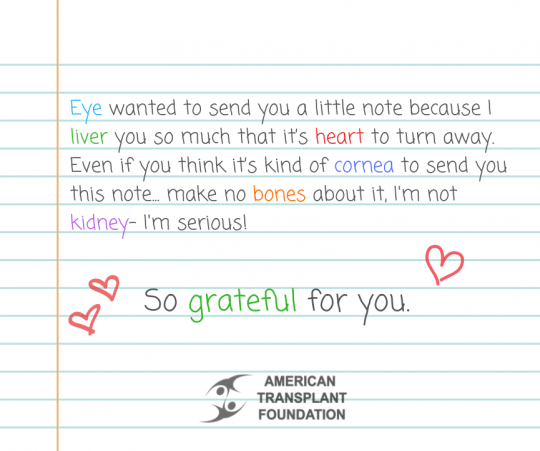 Eye wanted to send you a little note because I
liver you so much that it's heart to turn away.
Even if you think it's kind of cornea to send you
this note... make no bones about it, I'm not
kidney- I'm serious!
So grateful for you.
AMERICAN
TRANSPLANT
FOUNDATION